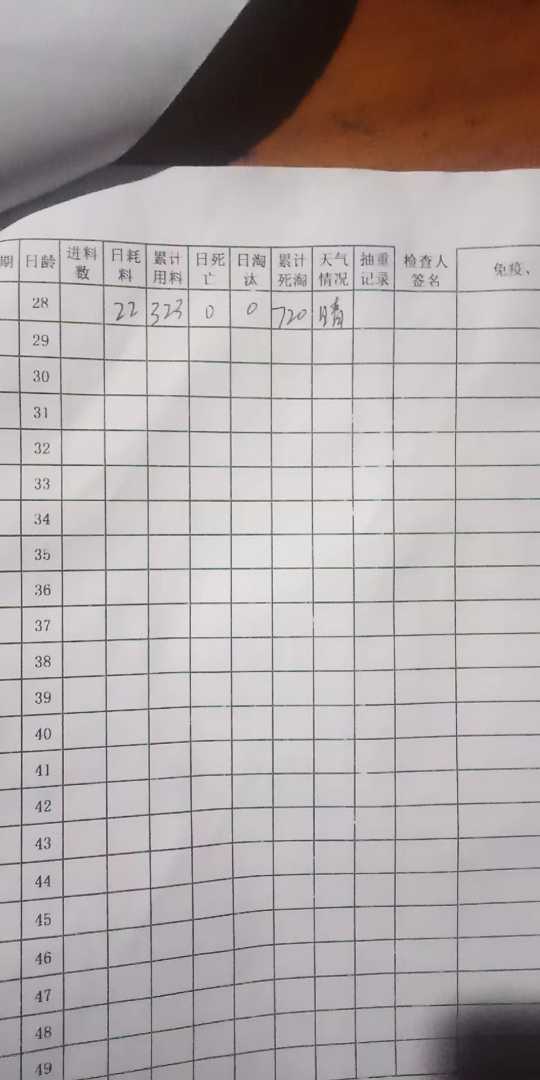 期 日龄 进料数 日耗料 累计用料 日死亡 日淘汰 累计死淘 天气情况 抽重记录 检查人签名 免疫、
28 22 323 0 0 720 晴
29
30
31
32
33
34
35
36
37
38
39
40
41
42
43
44
45
46
47
48
49